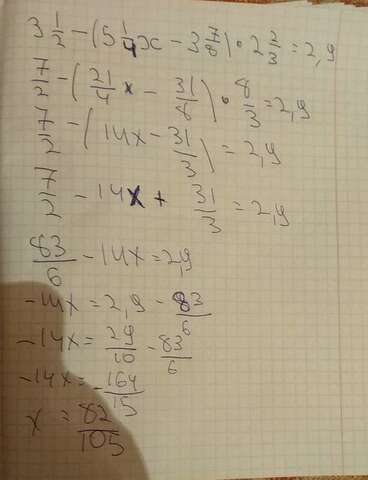 3 1/2 - (5 1/4 x - 3 7/8) • 2 2/3 = 2,9
7/2 - (21/4 x - 31/8) • 8/3 = 2,9
7/2 - (14x - 31/3) = 2,9
7/2 - 14x + 31/3 = 2,9
83/6 - 14x = 2,9
-14x = 2,9 - 83/6
-14x = 29/10 - 83/6
-14x = -164/15
x = 82/105